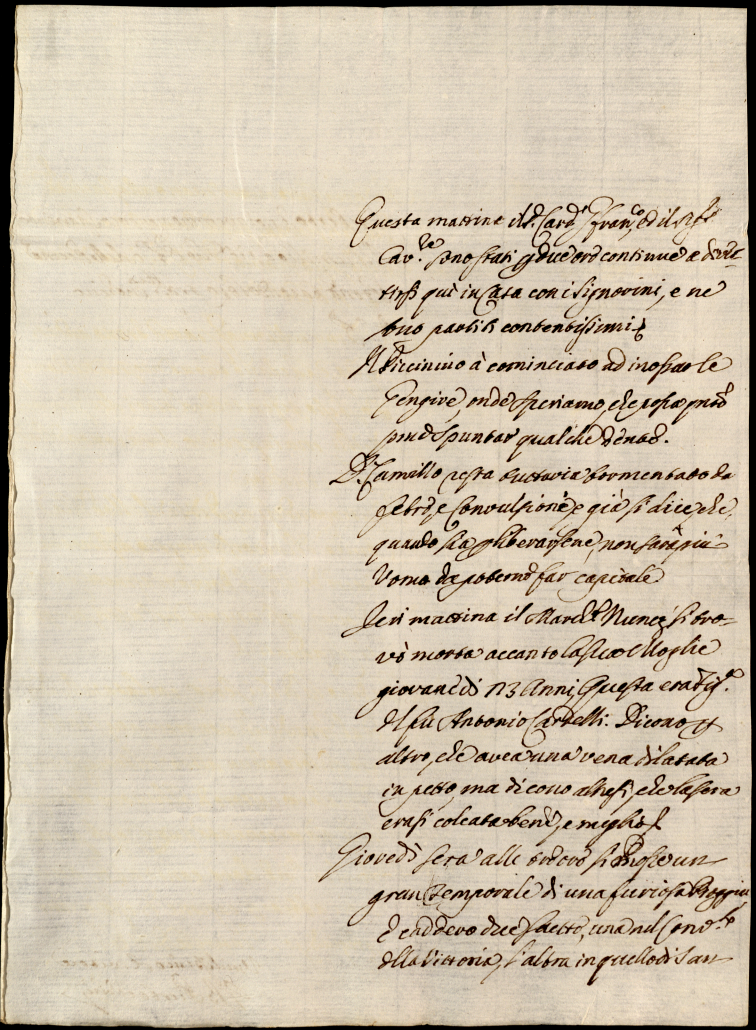 Questa mattina il S.r Card.l Fran.co, ed il Sig.r
Cav.re sono stati p due ore continue a divert-
tirsi quì in Casa con i Signorini, e ne
sono partiti contentissimi.
Il Piccinino à cominciato ad inossar le
Gengive, onde speriamo, che possa pnto
spuntar qualche dente.
D. Camillo resta tuttavia tormentato da
febre, e Convulsione, e già si dice, che,
quando sia p liberarsene, non sarà più
Uomo da poterne far capitale
Jeri mattina il March.e Nunez si tro-
vò morta accanto la sua Moglie
giovane di 23 Anni, Questa era fig.a
del fù Antonio Cardelli. Dicono p
altro, che avea una vena dilatata
in petto, ma dicono altresì, che la sera
erasi colcata bene, e meglio
Giovedì sera alle ore si mosse un
gran Temporale di una furiosa Pioggia,
e caddero due saette, una nel Conv.to
della Vittoria, l'altra in quello di San